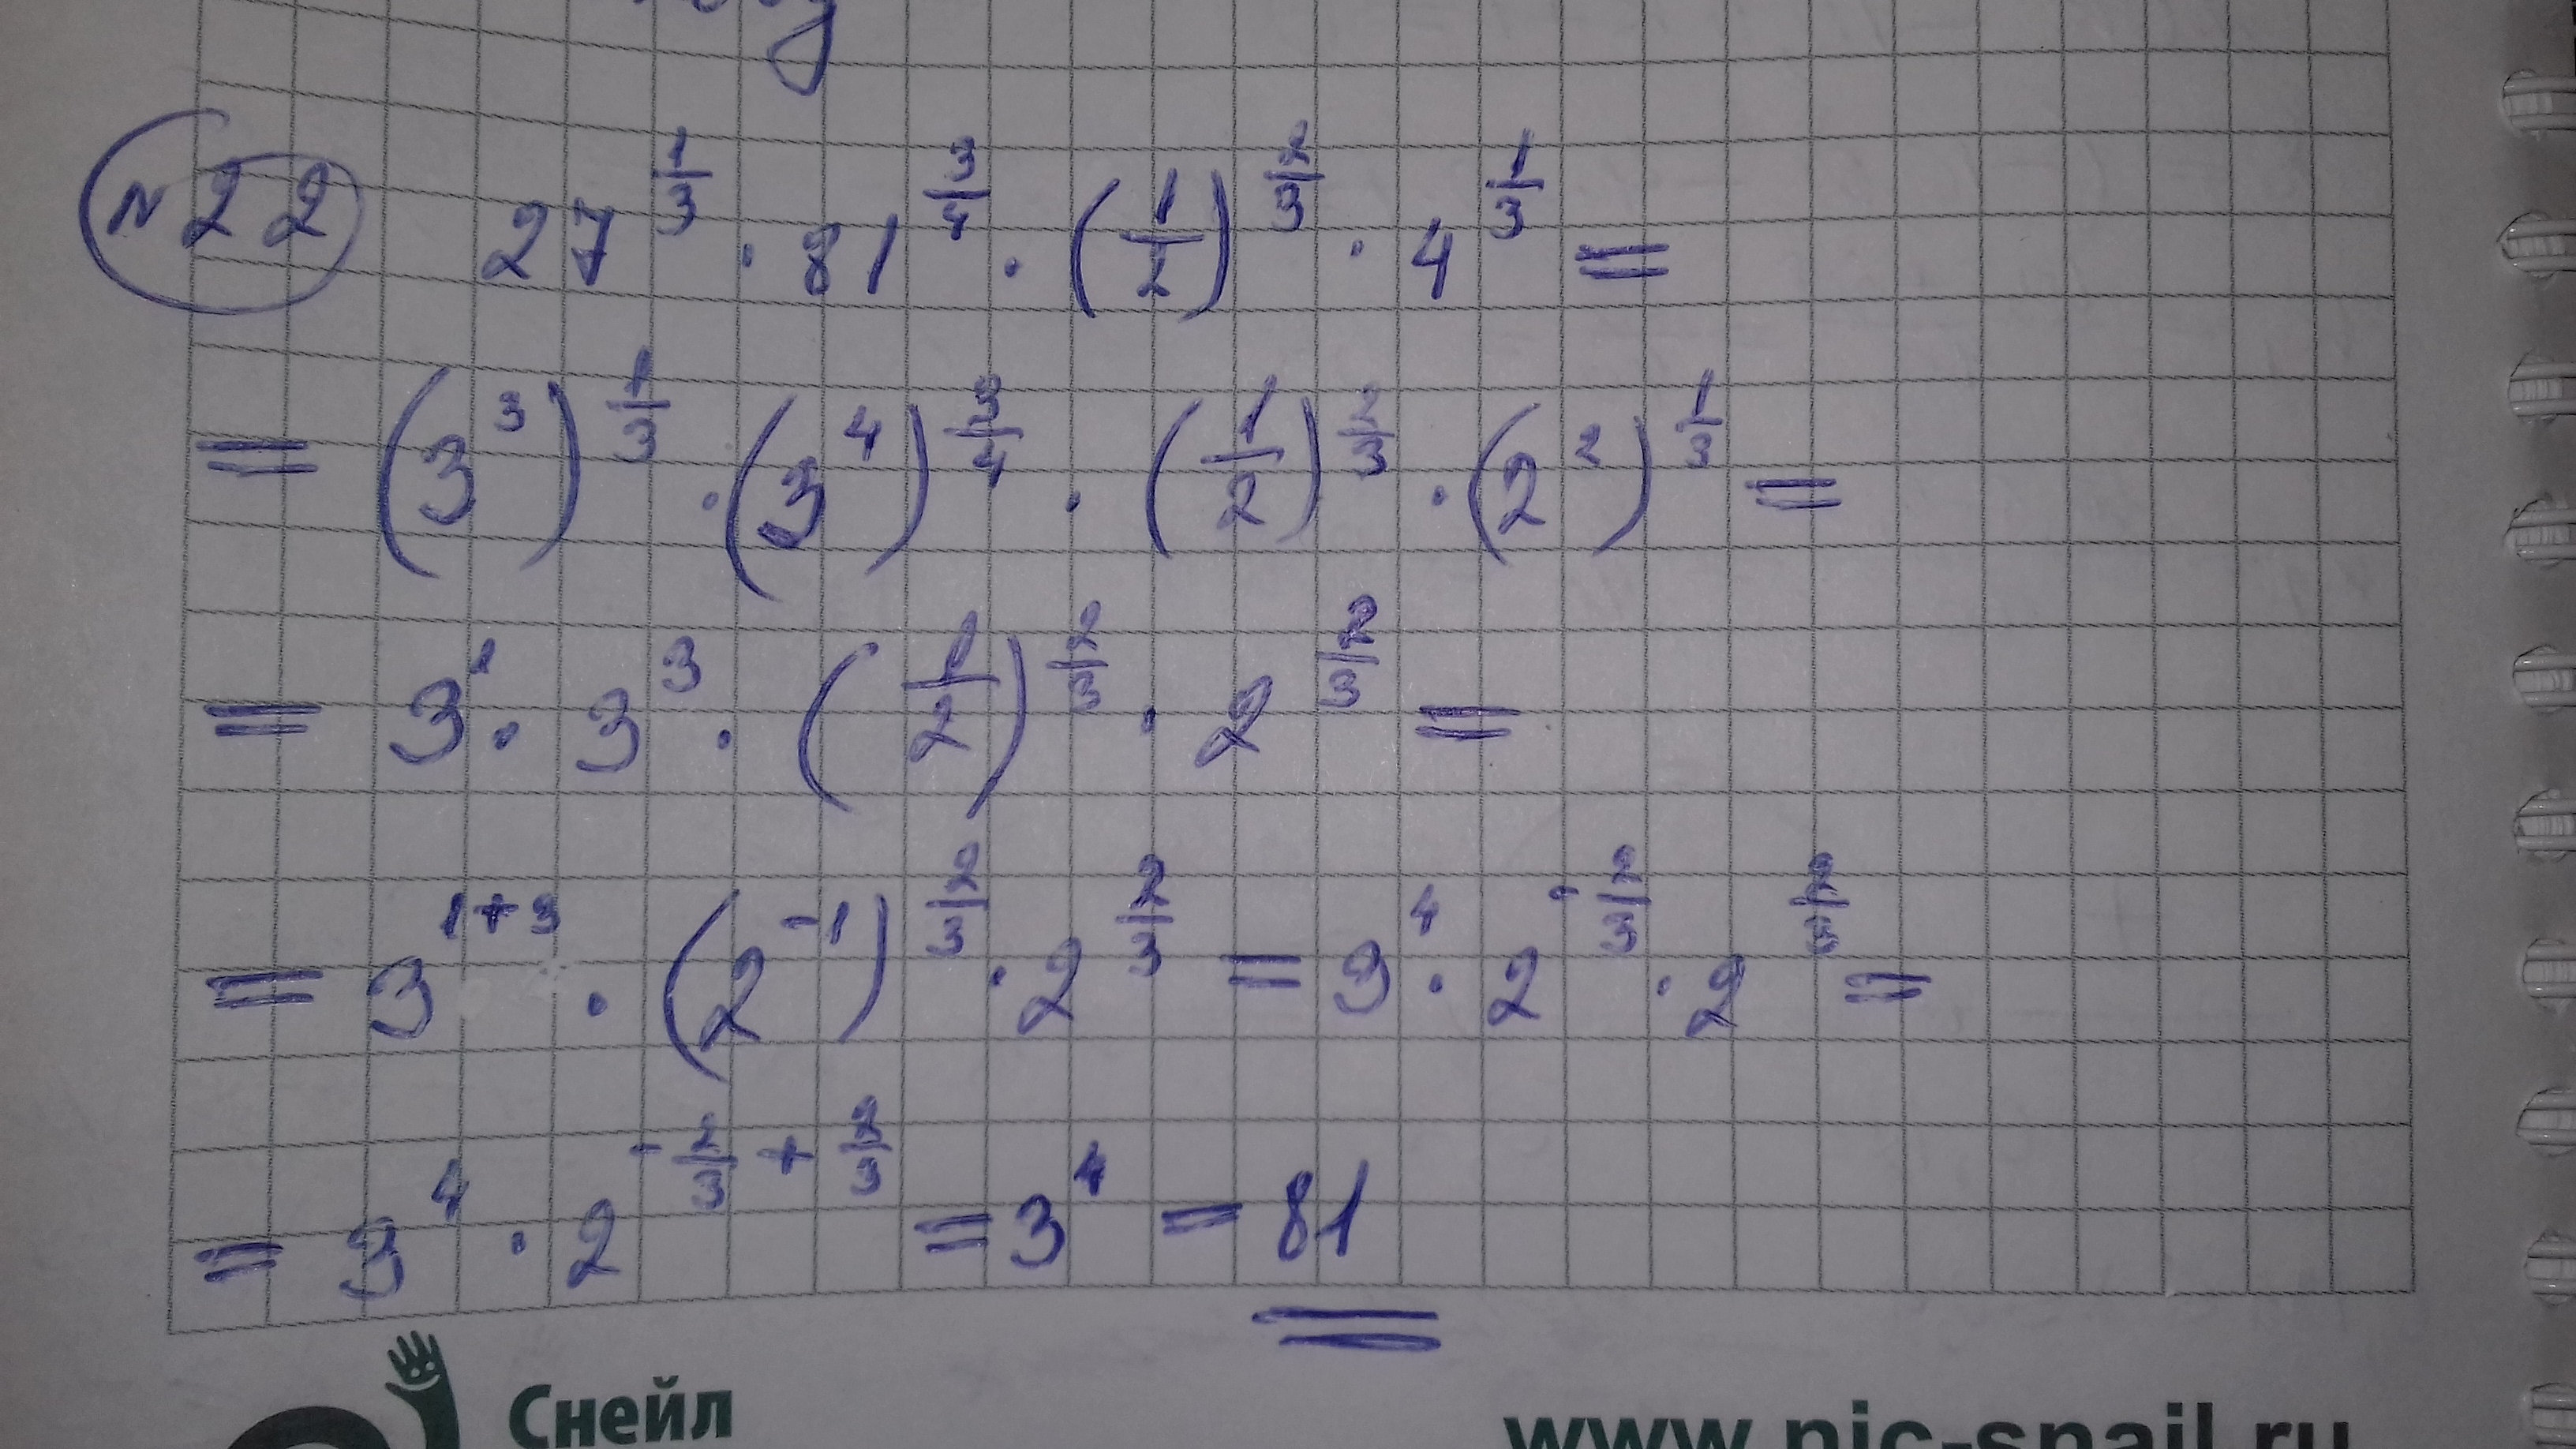 №22 27^(1/3) · 81^(3/4) · (1/2)^(2/3) · 4^(1/3) =
= (3^3)^(1/3) · (3^4)^(3/4) · (1/2)^(2/3) · (2^2)^(1/3) =
= 3^1 · 3^3 · (1/2)^(2/3) · 2^(2/3) =
= 3^(1+3) · (2^(-1))^(2/3) · 2^(2/3) = 3^4 · 2^(-2/3) · 2^(2/3) =
= 3^4 · 2^(-2/3 + 2/3) = 3^4 = 81
Снейл
www.nic-snail.ru